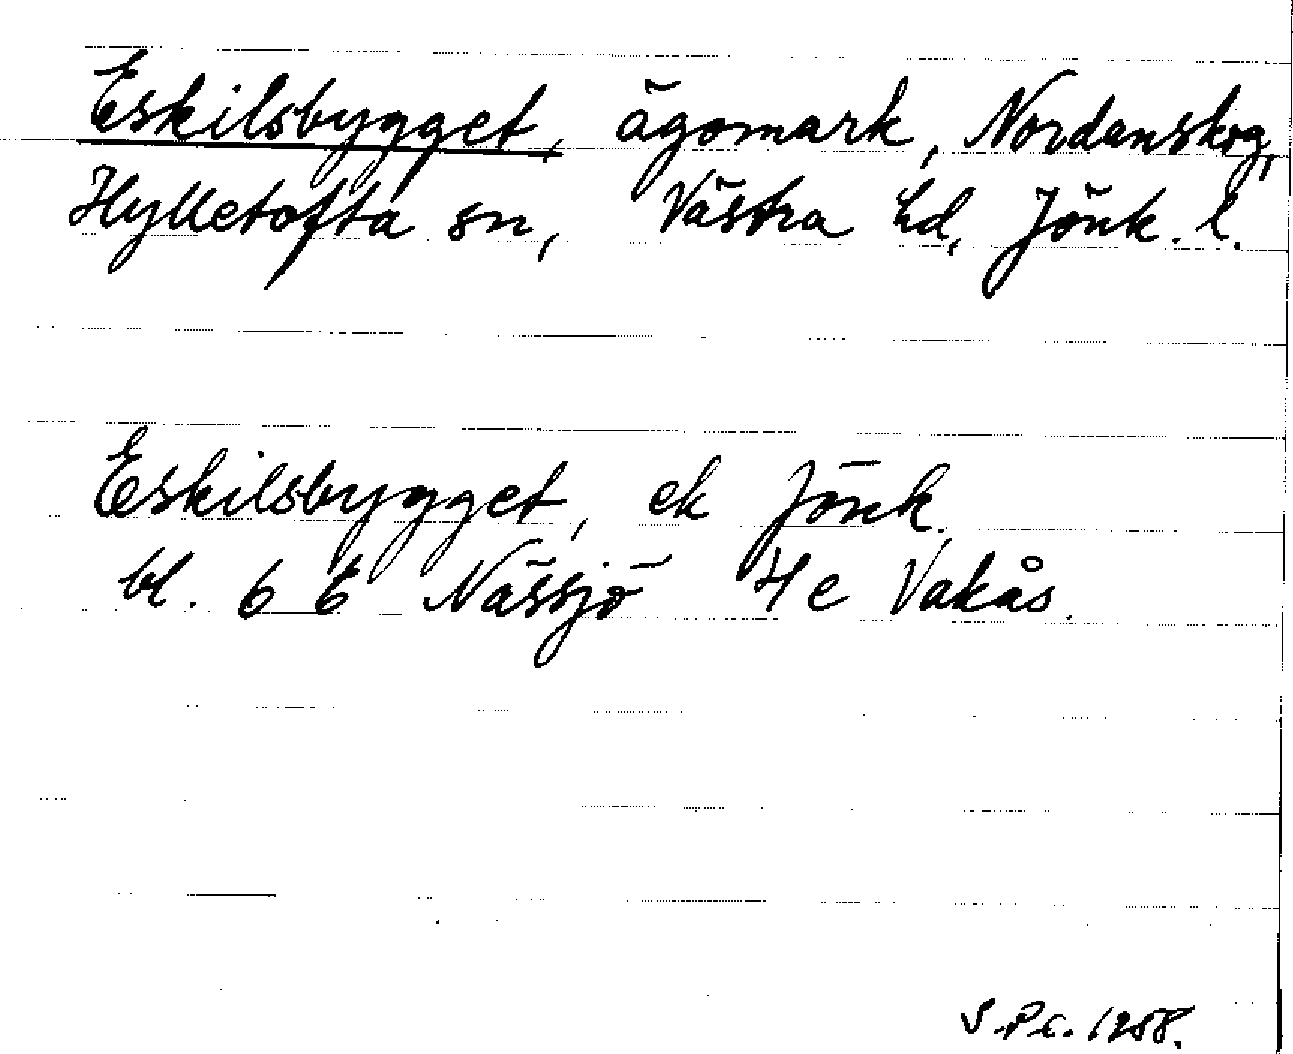 Eskilsbygget, ägomark, Nordanskog,
Hylletofta sn, Västra hd, Jönk. l.
Eskilsbygget, ek Jönk.
bl. 6 E Nässjö 4e Vakås.
1958.